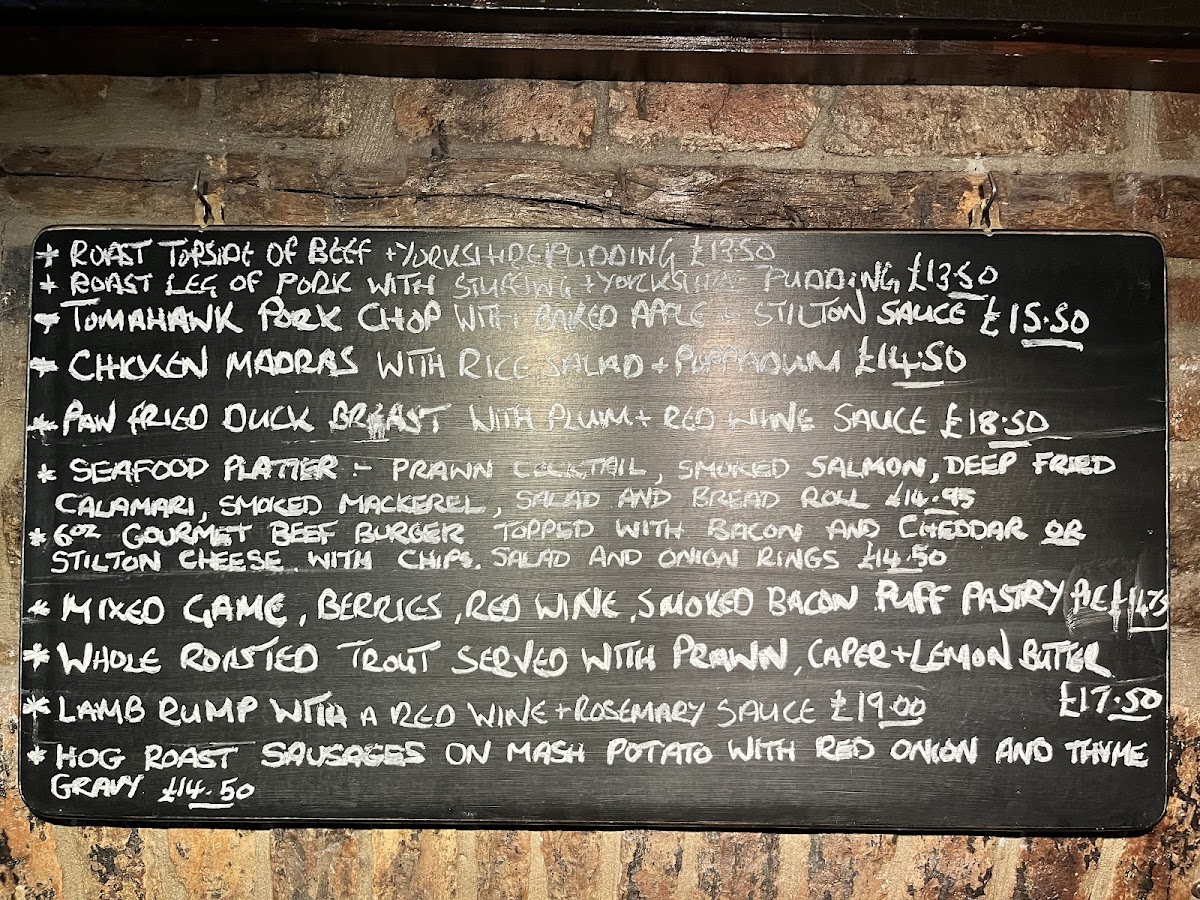 * ROAST TOPSIDE OF BEEF + YORKSHIRE PUDDING £13.50
* ROAST LEG OF PORK WITH STUFFING + YORKSHIRE PUDDING £13.50
* TOMAHAWK PORK CHOP WITH BAKED APPLE + STILTON SAUCE £15.50
* CHICKEN MADRAS WITH RICE SALAD + POPPADUM £14.50
* PAN FRIED DUCK BREAST WITH PLUM + RED WINE SAUCE £18.50
* SEAFOOD PLATTER - PRAWN COCKTAIL, SMOKED SALMON, DEEP FRIED
CALAMARI, SMOKED MACKEREL, SALAD AND BREAD ROLL £14.95
* 6oz GOURMET BEEF BURGER TOPPED WITH BACON AND CHEDDAR OR
STILTON CHEESE. WITH CHIPS. SALAD AND ONION RINGS £14.50
* MIXED GAME, BERRIES, RED WINE, SMOKED BACON PUFF PASTRY PIE £14.75
* WHOLE ROASTED TROUT SERVED WITH PRAWN, CAPER + LEMON BUTTER
£17.50
* LAMB RUMP WITH A RED WINE + ROSEMARY SAUCE £19.00
* HOG ROAST SAUSAGES ON MASH POTATO WITH RED ONION AND THYME
GRAVY. £14.50